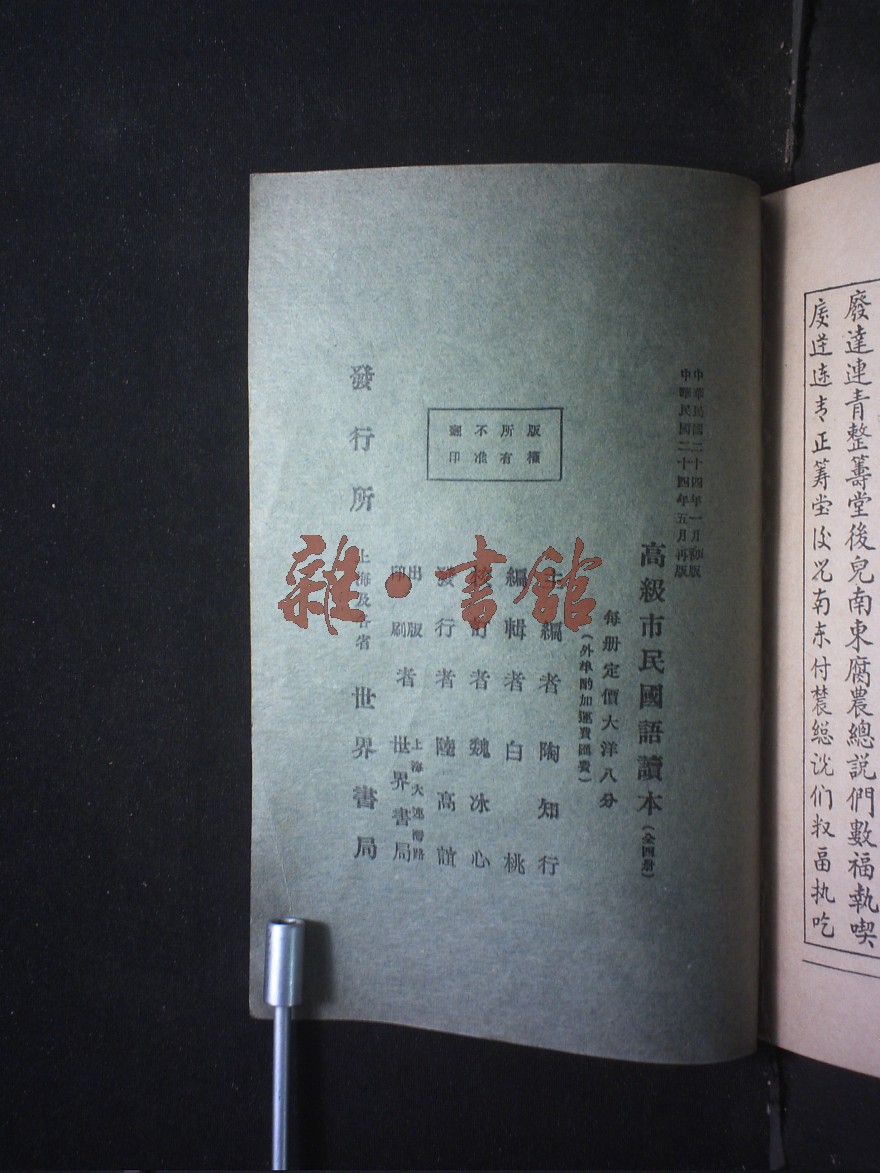 廢達連青整籌堂後兒南東腐農總説們數福執喫
废迖连青正筹坣后児南东付莀総说们数畐执吃
中華民國二十四年一月初版
中華民國二十四年五月再版
高級市民國語讀本(全四册)
每册定價大洋八分
(外埠酌加運費匯費)
版權
所有
不准
翻印
主編者 陶知行
編輯者 白桃
校訂者 魏冰心
發行者 陸高誼
出版
印刷者 上海大連灣路
世界書局
發行所 上海及各省 世界書局
雜·書館